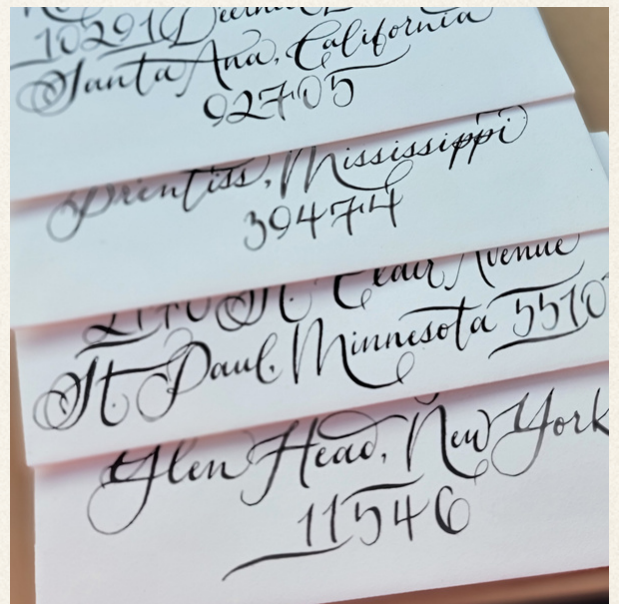 10291
Santa Ana, California
92705
Prentiss, Mississippi
39474
St. Clair Avenue
St Paul, Minnesota 5510
Glen Head, New York
11546